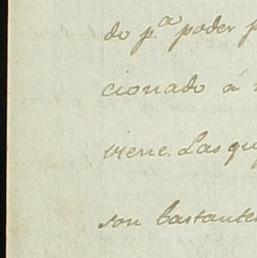 do p.ª poder
cionado á
viene. Las
son bastante